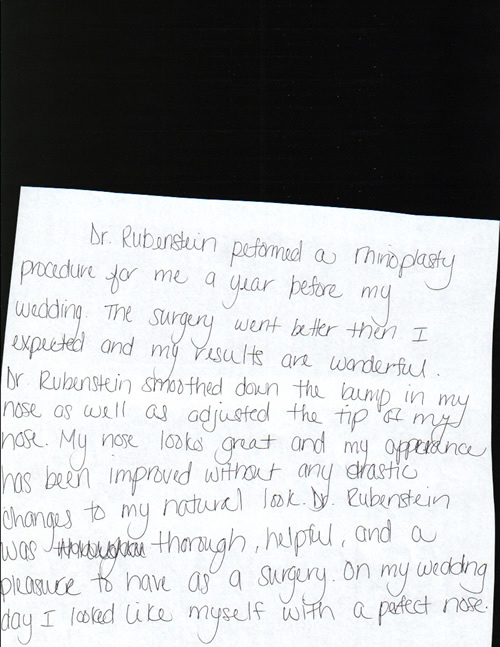 Dr. Rubenstein peformed a rhinoplasty
procedure for me a year before my
wedding. The surgery went better then I
expected and my results are wonderful.
Dr. Rubenstein smoothed down the bump in my
nose as well as adjusted the tip of my
nose. My nose looks great and my apperance
has been improved without any drastic
changes to my natural look. Dr. Rubenstein
was thorough, helpful, and a
pleasure to have as a surgery. On my wedding
day I looked like myself with a perfect nose.